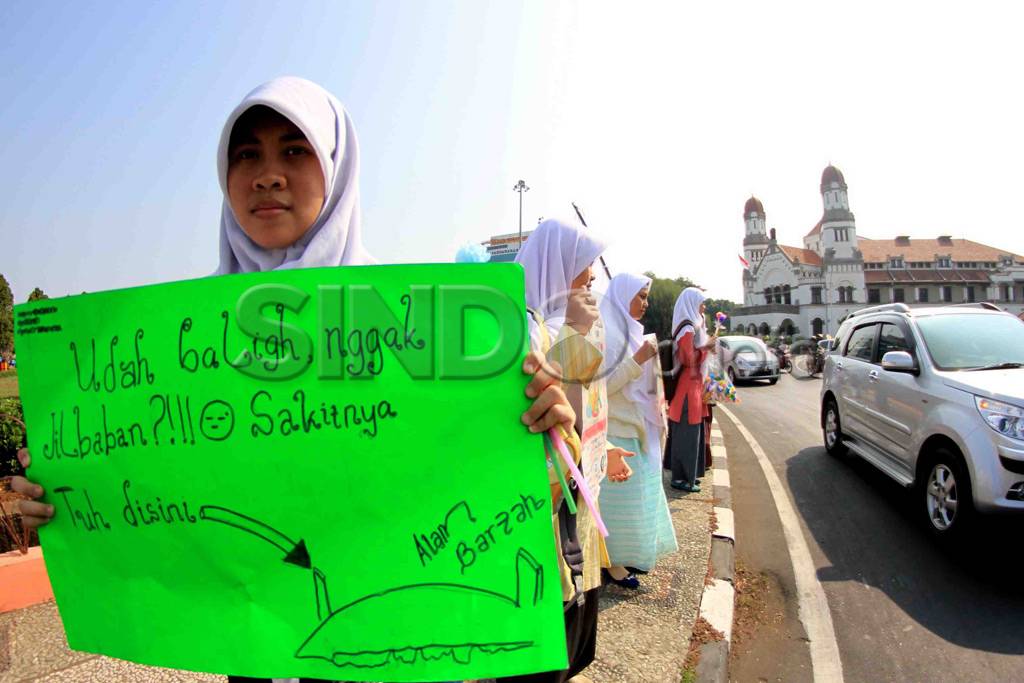 SINDOphoto
Udah baligh, nggak
Jilbaban?!!! Sakitnya
Tuh disini
Alam
Barzah